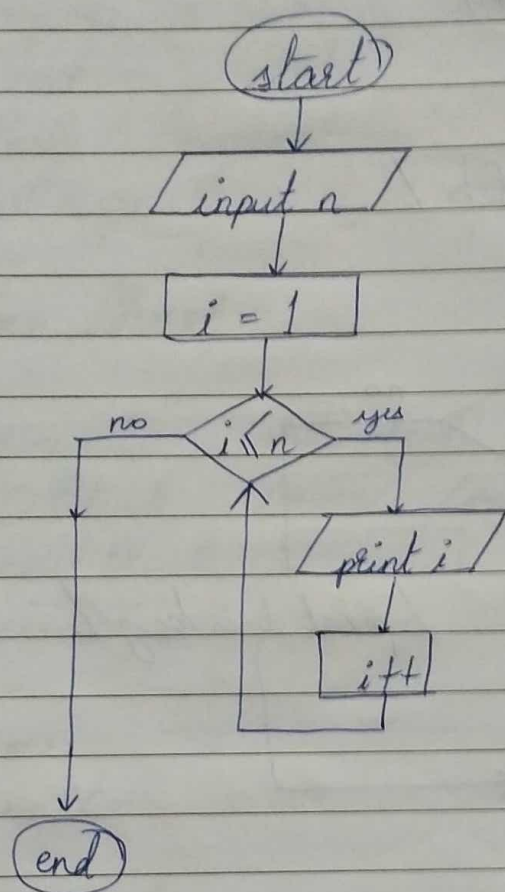 start
input n
i = 1
no
i ≤ n
yes
print i
i++
end